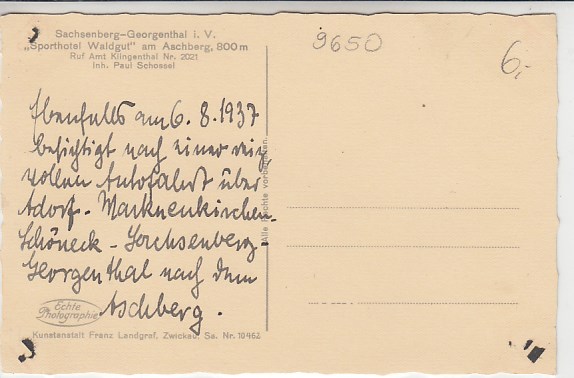 Sachsenberg-Georgenthal i. V.
„Sporthotel Waldgut" am Aschberg, 800 m
Ruf Amt Klingenthal Nr. 2021
Inh. Paul Schossel
9650
6,-
Ebenfalls am 6. 8. 1937
besichtigt nach einer reiz-
vollen Autofahrt über
Adorf - Markneukirchen-
Schöneck - Sachsenberg-
Georgenthal nach dem
Aschberg.
Alle Rechte vorbehalten.
Echte
Photographie
Kunstanstalt Franz Landgraf, Zwickau. Sa. Nr. 10462